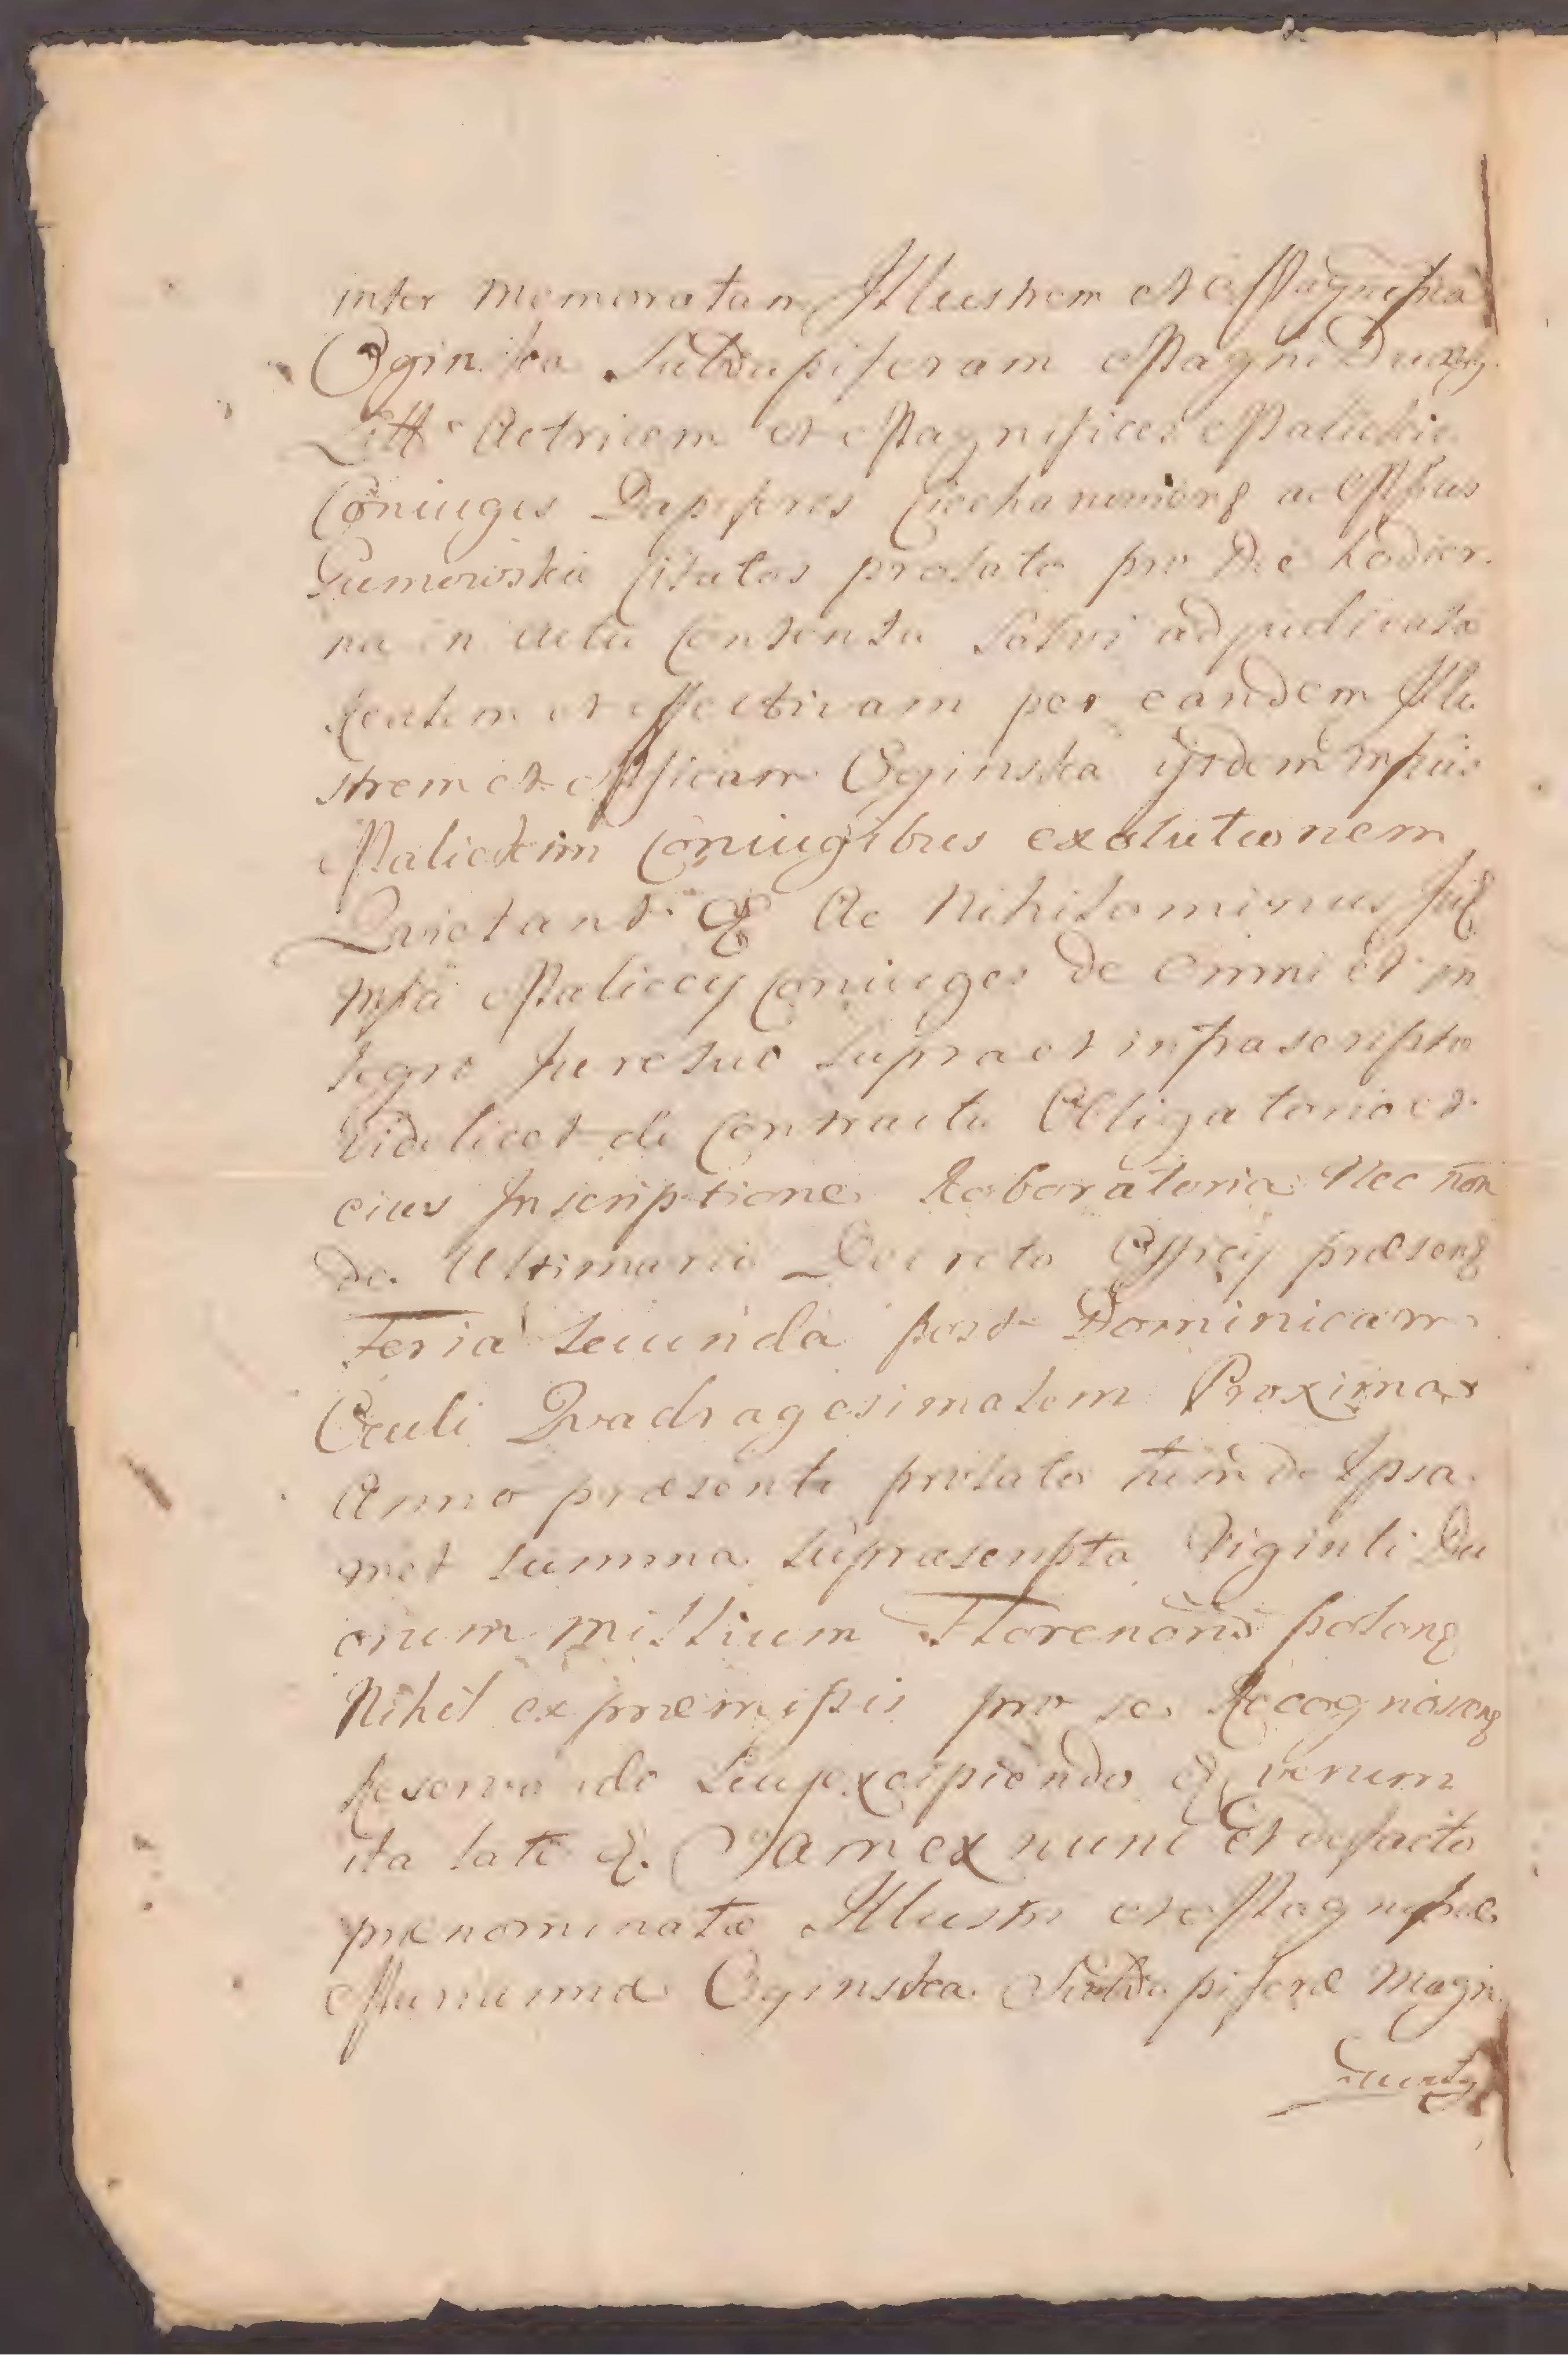 inter memoratam Illustrem et Magnificã
Oginska Subdapiferam Magni Ducatg
Litt. Actricem et Magnificos Malickie
Coniuges Dapiferos Ciechanoviens ac Mficus
Gumowskie Citatos prolato pro Die hodier
na in actu contenta solvi adjudicata
Realem et effectivam per eandem Illu
strem et Mficam Oginska ijsdem Mficis
Malickim Coniugibus exolutionem
Quietant & Ac Nihilominus
Mfici Maliccy Coniuges de Omni et in
tegro Jure suo supra et infrascripto
videlicet de Contractu Obligatorio et
eius Inscriptione Roboratoria Nec non
de Ultimario Decreto Officij præsens
Feria Secunda post Dominicam
Oculi Quadragesimalem Proxima
Anno præsenti prolato tum de Ipsa
met summa suprascripta Viginti Du
orum millium Florenorũ polons
Nihil ex præmissis pro se Recognoscens
Reservando seu excipiendo & verum
ita late &. Jam ex nunc Et de facto
prænominatæ Illustri et Magnificæ
Mariannæ Oginska Subdapiferæ Magni
Ducatg